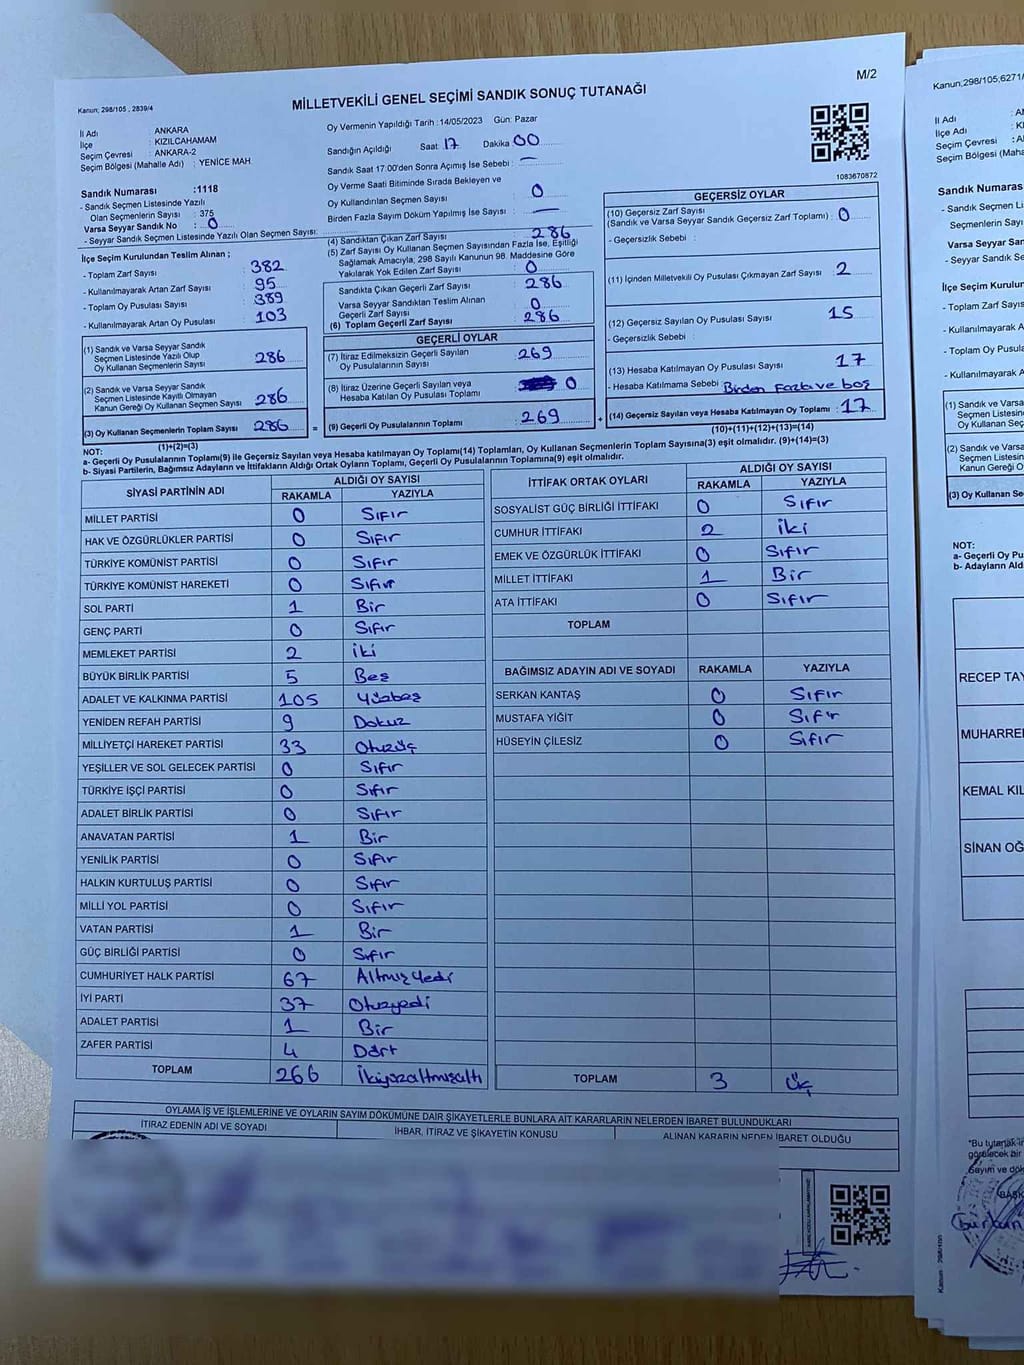 M/2
Kanun; 298/105 , 2839/4
MİLLETVEKİLİ GENEL SEÇİMİ SANDIK SONUÇ TUTANAĞI
İl Adı : ANKARA
İlçe : KIZILCAHAMAM
Seçim Çevresi : ANKARA-2
Seçim Bölgesi (Mahalle Adı) : YENİCE MAH.
Sandık Numarası :1118
- Sandık Seçmen Listesinde Yazılı
Olan Seçmenlerin Sayısı : 375
Varsa Seyyar Sandık No : 0
- Seyyar Sandık Seçmen Listesinde Yazılı Olan Seçmen Sayısı:
İlçe Seçim Kurulundan Teslim Alınan ;
- Toplam Zarf Sayısı : 382
- Kullanılmayarak Artan Zarf Sayısı : 95
- Toplam Oy Pusulası Sayısı : 389
- Kullanılmayarak Artan Oy Pusulası : 103
(1) Sandık ve Varsa Seyyar Sandık
Seçmen Listesinde Yazılı Olup
Oy Kullanan Seçmenlerin Sayısı 286
(2) Sandık ve Varsa Seyyar Sandık
Seçmen Listesinde Kayıtlı Olmayan
Kanun Gereği Oy Kullanan Seçmen Sayısı 286
(3) Oy Kullanan Seçmenlerin Toplam Sayısı 286
(1)+(2)=(3)
Oy Vermenin Yapıldığı Tarih :14/05/2023 Gün: Pazar
Sandığın Açıldığı Saat 17 Dakika 00
Sandık Saat 17:00'den Sonra Açımış İse Sebebi : —
Oy Verme Saati Bitiminde Sırada Bekleyen ve
Oy Kullandırılan Seçmen Sayısı : 0
Birden Fazla Sayım Döküm Yapılmış İse Sayısı : —
(4) Sandıktan Çıkan Zarf Sayısı : 286
(5) Zarf Sayısı Oy Kullanan Seçmen Sayısından Fazla İse, Eşitliği
Sağlamak Amacıyla, 298 Sayılı Kanunun 98. Maddesine Göre
Yakılarak Yok Edilen Zarf Sayısı : 0
Sandıkta Çıkan Geçerli Zarf Sayısı : 286
Varsa Seyyar Sandıktan Teslim Alınan
Geçerli Zarf Sayısı : 0
(6) Toplam Geçerli Zarf Sayısı : 286
GEÇERLİ OYLAR
(7) İtiraz Edilmeksizin Geçerli Sayılan
Oy Pusulalarının Sayısı : 269
(8) İtiraz Üzerine Geçerli Sayılan veya
Hesaba Katılan Oy Pusulası Toplamı : 0
= (9) Geçerli Oy Pusulalarının Toplamı : 269 +
1083670872
GEÇERSİZ OYLAR
(10) Geçersiz Zarf Sayısı
(Sandık ve Varsa Seyyar Sandık Geçersiz Zarf Toplamı) : 0
- Geçersizlik Sebebi :
(11) İçinden Milletvekili Oy Pusulası Çıkmayan Zarf Sayısı : 2
(12) Geçersiz Sayılan Oy Pusulası Sayısı : 15
- Geçersizlik Sebebi :
(13) Hesaba Katılmayan Oy Pusulası Sayısı : 17
- Hesaba Katılmama Sebebi : Birden Fazla ve boş
(14) Geçersiz Sayılan veya Hesaba Katılmayan Oy Toplamı : 17
(10)+(11)+(12)+(13)=(14)
NOT:
a- Geçerli Oy Pusulalarının Toplamı(9) ile Geçersiz Sayılan veya Hesaba katılmayan Oy Toplamı(14) Toplamları, Oy Kullanan Seçmenlerin Toplam Sayısına(3) eşit olmalıdır. (9)+(14)=(3)
b- Siyasi Partilerin, Bağımsız Adayların ve İttifakların Aldığı Ortak Oyların Toplamı, Geçerli Oy Pusulalarının Toplamına(9) eşit olmalıdır.
SİYASİ PARTİNİN ADI ALDIĞI OY SAYISI
RAKAMLA YAZIYLA
MİLLET PARTİSİ 0 Sıfır
HAK VE ÖZGÜRLÜKLER PARTİSİ 0 Sıfır
TÜRKİYE KOMÜNİST PARTİSİ 0 Sıfır
TÜRKİYE KOMÜNİST HAREKETİ 0 Sıfır
SOL PARTİ 1 Bir
GENÇ PARTİ 0 Sıfır
MEMLEKET PARTİSİ 2 İki
BÜYÜK BİRLİK PARTİSİ 5 Beş
ADALET VE KALKINMA PARTİSİ 105 Yüzbeş
YENİDEN REFAH PARTİSİ 9 Dokuz
MİLLİYETÇİ HAREKET PARTİSİ 33 Otuzüç
YEŞİLLER VE SOL GELECEK PARTİSİ 0 Sıfır
TÜRKİYE İŞÇİ PARTİSİ 0 Sıfır
ADALET BİRLİK PARTİSİ 0 Sıfır
ANAVATAN PARTİSİ 1 Bir
YENİLİK PARTİSİ 0 Sıfır
HALKIN KURTULUŞ PARTİSİ 0 Sıfır
MİLLİ YOL PARTİSİ 0 Sıfır
VATAN PARTİSİ 1 Bir
GÜÇ BİRLİĞİ PARTİSİ 0 Sıfır
CUMHURİYET HALK PARTİSİ 67 Altmışyedi
İYİ PARTİ 37 Otuzyedi
ADALET PARTİSİ 1 Bir
ZAFER PARTİSİ 4 Dört
TOPLAM 266 İkiyüzaltmışaltı
İTTİFAK ORTAK OYLARI ALDIĞI OY SAYISI
RAKAMLA YAZIYLA
SOSYALİST GÜÇ BİRLİĞİ İTTİFAKI 0 Sıfır
CUMHUR İTTİFAKI 2 İki
EMEK VE ÖZGÜRLÜK İTTİFAKI 0 Sıfır
MİLLET İTTİFAKI 1 Bir
ATA İTTİFAKI 0 Sıfır
TOPLAM
BAĞIMSIZ ADAYIN ADI VE SOYADI RAKAMLA YAZIYLA
SERKAN KANTAŞ 0 Sıfır
MUSTAFA YİĞİT 0 Sıfır
HÜSEYİN ÇİLESİZ 0 Sıfır
TOPLAM 3 Üç
OYLAMA İŞ VE İŞLEMLERİNE VE OYLARIN SAYIM DÖKÜMÜNE DAİR ŞİKAYETLERLE BUNLARA AİT KARARLARIN NELERDEN İBARET BULUNDUKLARI
İTİRAZ EDENİN ADI VE SOYADI İHBAR, İTİRAZ VE ŞİKAYETİN KONUSU ALINAN KARARIN NEDEN İBARET OLDUĞU
Kanun;298/105;6271/
İl Adı
İlçe Adı
Seçim Çevresi
Seçim Bölgesi (Maha
Sandık Numaras
- Sandık Seçmen L
Seçmenlerin Sayı
Varsa Seyyar Sand
- Seyyar Sandık Se
İlçe Seçim Kurulur
- Toplam Zarf Sayıs
- Kullanılmayarak A
- Toplam Oy Pusula
- Kullanılmayarak A
(1) Sandık ve Varsa
Seçmen Listesin
Oy Kullanan Seç
(2) Sandık ve Varsa
Seçmen Listesin
Kanun Gereği O
(3) Oy Kullanan Se
NOT:
a- Geçerli Oy Pu
b- Adayların Ald
RECEP TAY
MUHARRE
KEMAL KIL
SİNAN OĞ
"Bu tutanak
görülecek bir
Sayım ve dö